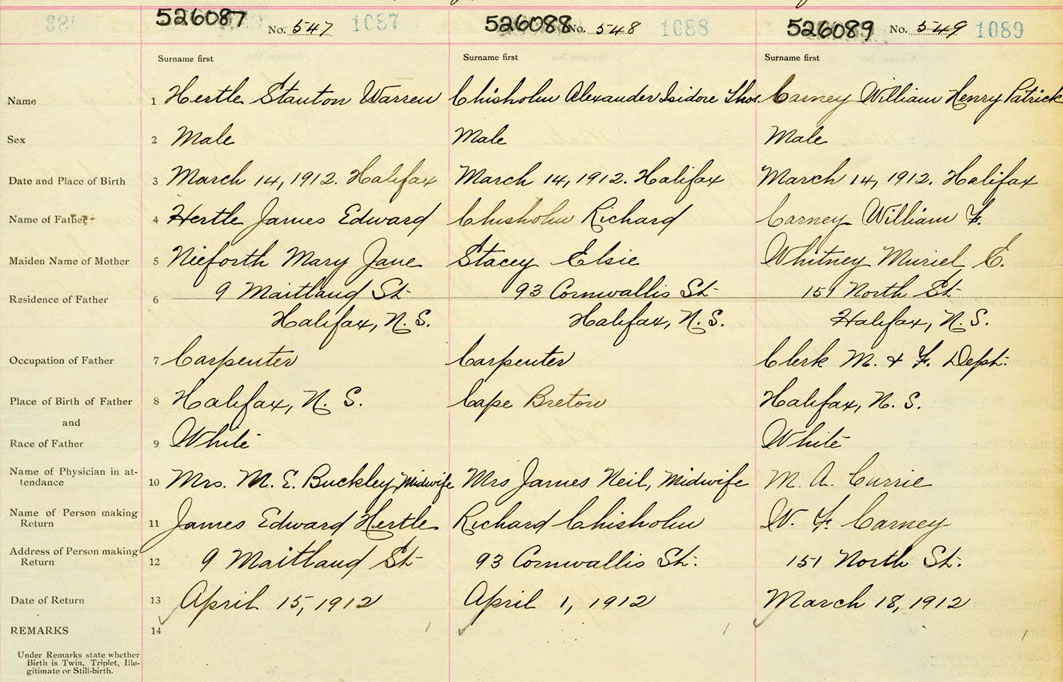 526087 No. 547 1087 526088 No. 548 1088 526089 No. 549 1089
Surname first Surname first Surname first
Name 1 Hertle Stanton Warren Chisholm Alexander Isidore Thos. Carney William Henry Patrick
Sex 2 Male Male Male
Date and Place of Birth 3 March 14, 1912. Halifax March 14, 1912. Halifax March 14, 1912. Halifax
Name of Father 4 Hertle James Edward Chisholm Richard Carney William F.
Maiden Name of Mother 5 Nieforth Mary Jane Stacey Elsie Whitney Muriel E.
Residence of Father 6 9 Maitland St. 93 Cornwallis St. 151 North St.
Halifax, N.S. Halifax, N.S. Halifax, N.S.
Occupation of Father 7 Carpenter Carpenter Clerk M. & F. Dept.
Place of Birth of Father 8 Halifax, N.S. Cape Breton Halifax, N.S.
and
Race of Father 9 White White
Name of Physician in at-
tendance 10 Mrs. M. E. Buckley, Midwife Mrs James Neil, Midwife M. A. Currie
Name of Person making
Return 11 James Edward Hertle Richard Chisholm W. F. Carney
Address of Person making
Return 12 9 Maitland St. 93 Cornwallis St. 151 North St.
Date of Return 13 April 15, 1912 April 1, 1912 March 18, 1912
REMARKS 14
Under Remarks state whether
Birth is Twin, Triplet, Ille-
gitimate or Still-birth.